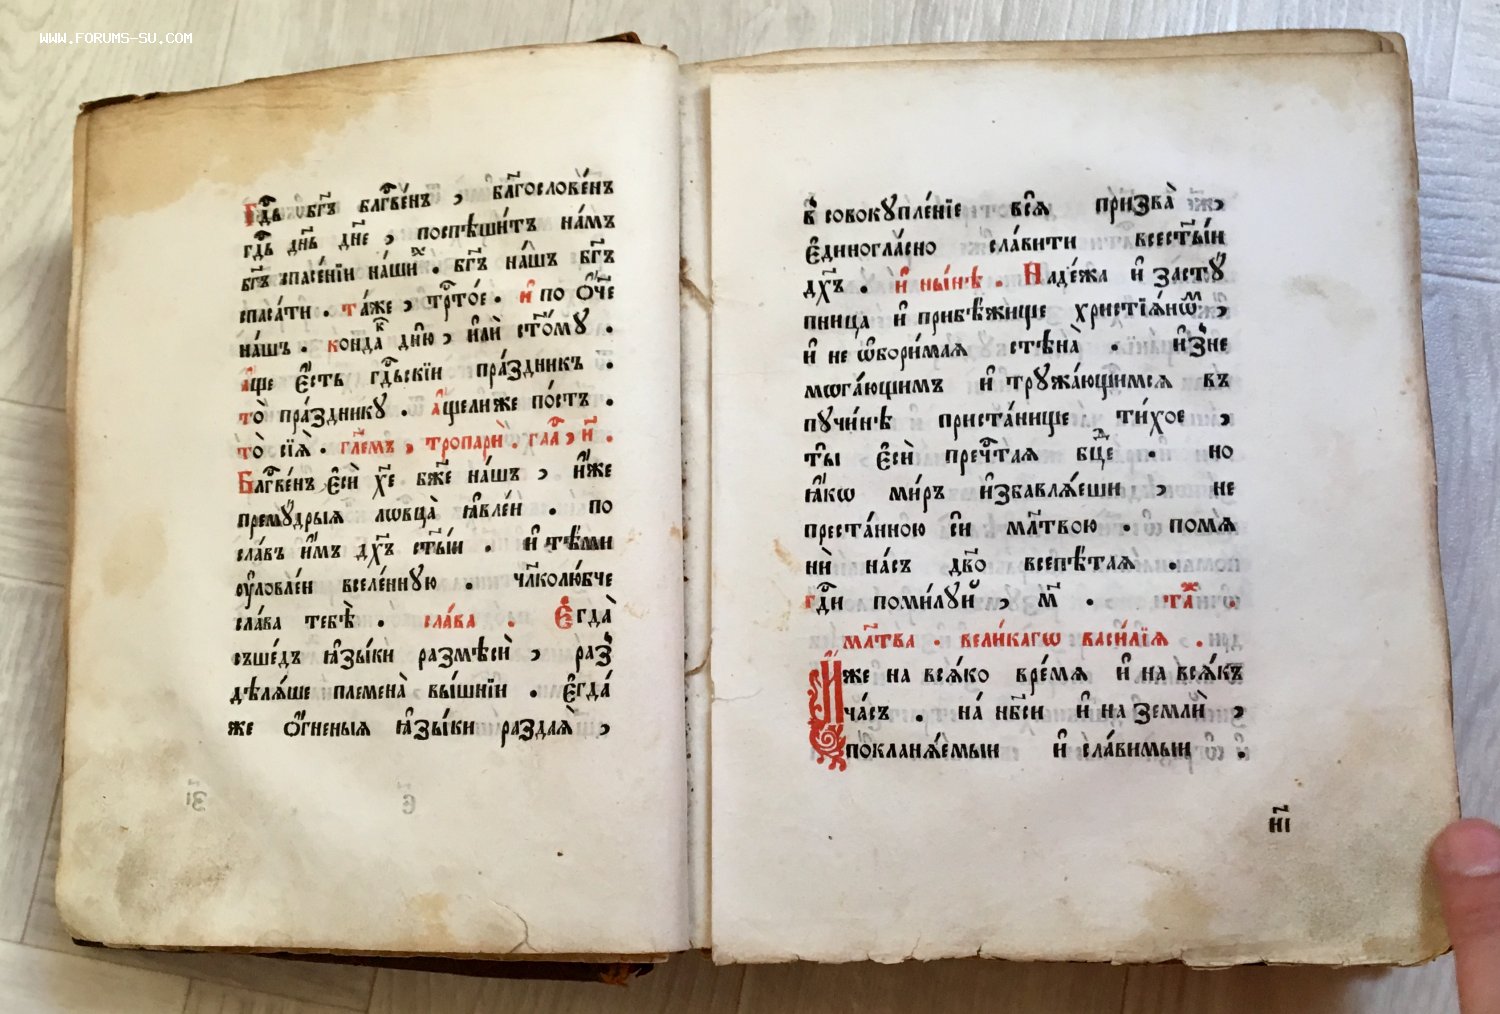 WWW.FORUMS-SU.COM
Гдⷭ҇ь бг҃ъ блгⷭ҇ве́нъ , бл҃гослове́нъ
гдⷭ҇ь дн҃ь дн҃е , поспѣши́тъ на́мъ
бг҃ъ спасе́нїи на́шиⷯ . бг҃ъ на́шъ бг҃ъ
спаса́ти . та́же , трⷭ҇то́е . и҆ по ѻ҆́ч҃е
на́шъ . кондаⷦ҇ дню̀ , и҆лѝ ст҃о́мꙋ .
а҆́ще є҆́сть гдⷭ҇ьскїи пра́здникъ .
то̀ пра́зднику . а҆́щелиже по́стъ .
то̀ сїѧ̀ . гл҃емъ , тропарѝ . глаⷭ҇ , и҃ .
Блгⷭ҇ве́нъ є҆сѝ хе҃ бж҃е на́шъ , и҆́же
премꙋ́дрыѧ ловца̀ ꙗ҆вле́и . по
сла́въ и҆̀мъ дх҃ъ ст҃ы́и . и҆ тѣ́ми
оу҆ловле́и вселе́ннꙋю . чл҃колю́бче
сла́ва тебѣ̀ . сла́ва . Є҆гда̀
съше́дъ ꙗ҆зы́ки размѣсѝ , раз̾
дѣлѧ́ше племена̀ вы́шнїи . є҆гда́
же ѻ҆́гненыѧ ꙗ҆зы́ки раздаѧ̀ ,
в̾ совокꙋпле́нїе всѧ̑ призва̀ ,
є҆диногла́сно сла́вити всест҃ы́и
дх҃ъ . и҆ ны́нѣ . Наде́жа и҆ застꙋ
пница и҆ прибѣ́жище христїѧ́нѡⷨ ,
и҆ не ѡ҆бори́маѧ стѣна̀ . и҆з̾не
мога́ющимъ и҆ трꙋжа́ющимсѧ въ
пꙋчи́нѣ приста́нище ти́хое ,
ты̀ є҆сѝ пречⷭ҇таѧ бцⷣе . но
ꙗ҆́кѡ ми́ръ и҆збавлѧ́еши , не
преста́нною сѝ мл҃твою . помѧ
нѝ на́съ дв҃о всепѣ́таѧ .
гдⷭ҇и поми́лꙋй , м҃ . таⷤ .
мл҃тва . вели́кагѡ васи́лїѧ .
И҆́же на всѧ́ко вре́мѧ и҆ на всѧ́къ
ча́съ . на́ нб҃си и҆ на землѝ ,
покланѧ́емыи и҆ сла́вимыи .
н҃і